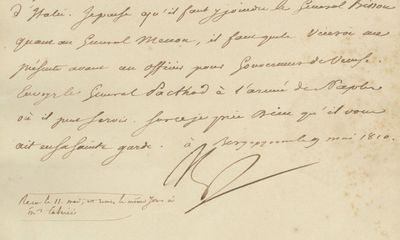 d'Italie. Je pense qu'il faut y joindre le Général Brisson
quant au Général Menou, il faut que le Viceroi me
présente avant un officier pour Gouverneur de Venise.
Envoyez le Général Pacthod à l'armée de Naples
où il peut servir. Sur ce je prie Dieu qu'il vous
ait en sa sainte garde. à Bergopzoom le 9 mai 1810.
Reçu le 11 mai, et remis le même jour à
Mr